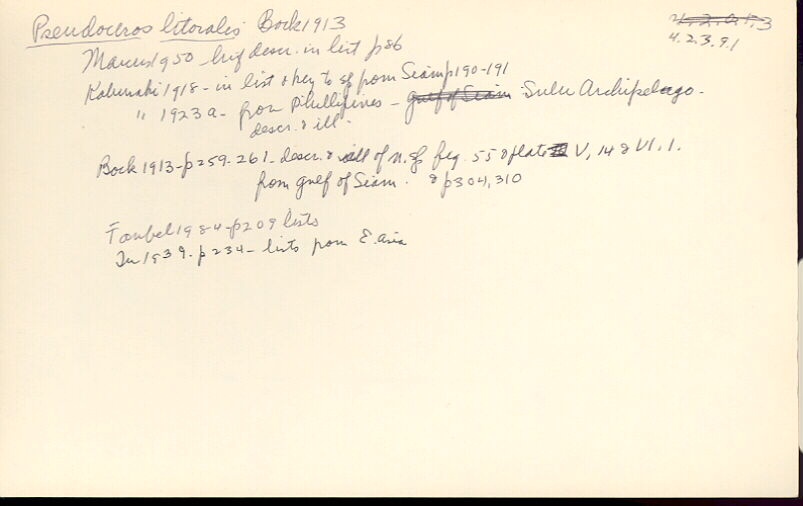 Pseudoceros litoralis Bock 1913
4.2.3.9.1
Marcus 1950 - brief descr. in list p86
Kaburaki 1918 - in list & key to sp from Siam p190-191
" 1923a - from Phillipines - gulf of Siam Sulu Archipelago -
descr. & ill.
Bock 1913 - p259-261 - descr. & ill of n.sp fig. 55 & plate V, 14 & VI. 1.
from gulf of Siam. & p304, 310
Faubel 1984 - p209 lists
1939. p234 - lists from E. asia